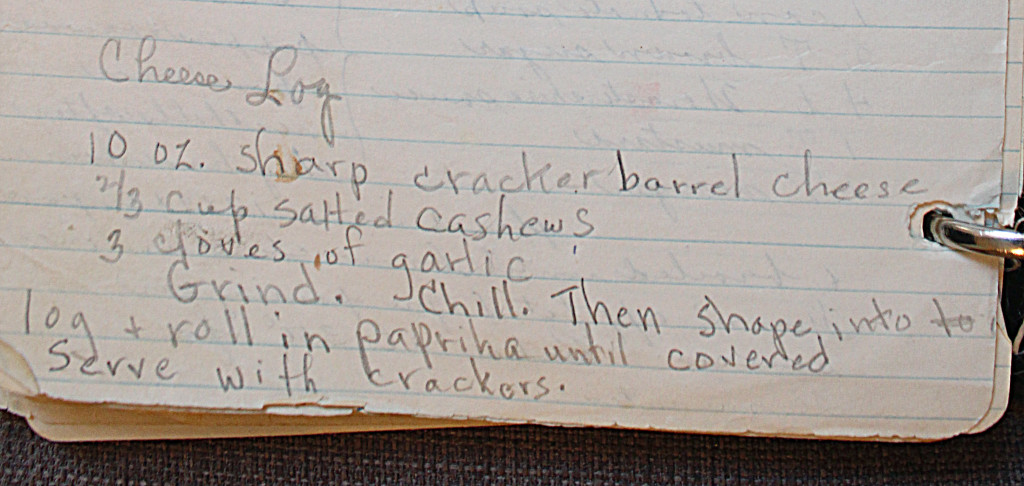 Cheese Log
10 oz. sharp cracker barrel cheese
2/3 cup salted cashews
3 cloves of garlic
Grind. Chill. Then shape into to
log + roll in paprika until covered
Serve with crackers.